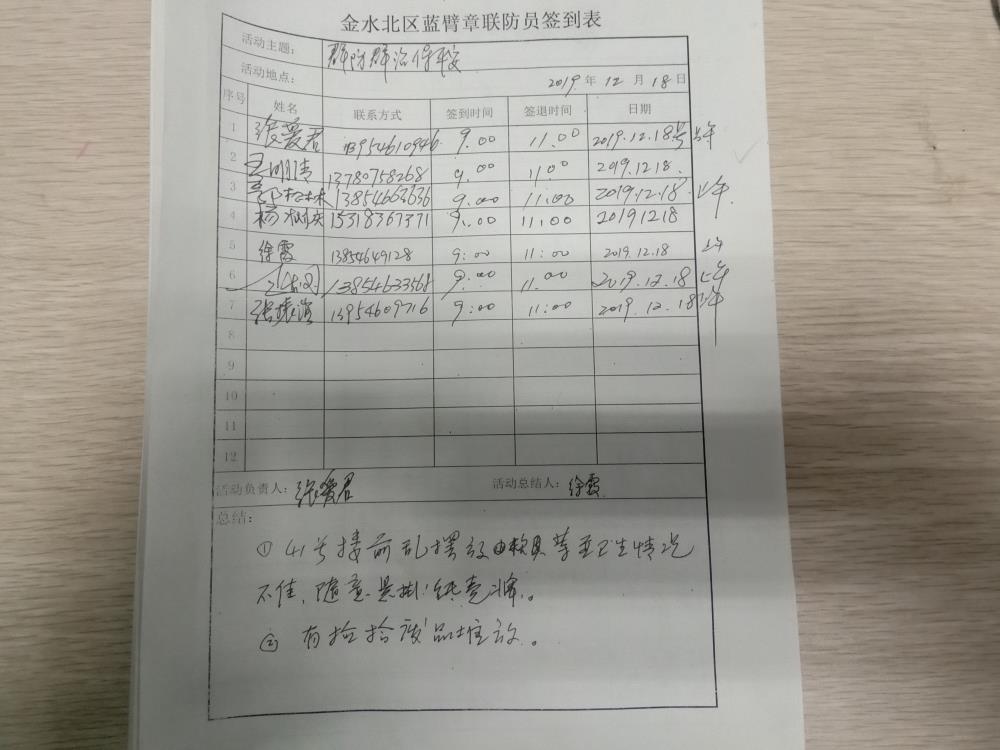 金水北区蓝臂章联防员签到表
活动主题： 群防群治保平安
活动地点： 2019年12月18日
序号 姓名 联系方式 签到时间 签退时间 日期
1 张爱君 13954610946 9.00 11.00 2019.12.18号 上午
2 13780758268 9.00 11.00 2019.12.18.
3 13854663636 9.00 11:00 2019.12.18. 上午
4 杨树庆 15318367371 9.00 11:00 20191218
5 徐霞 13854649128 9:00 11:00 2019.12.18 上午
6 13854633568 9.00 11.00 2019.12.18 上午
7 张振滨 13954609716 9:00 11:00 2019.12.18 上午
8
9
10
11
12
活动负责人： 张爱君 活动总结人： 徐霞
总结：
① 41号楼前乱摆放 等 卫生情况
不佳，随意悬挂 。
② 有捡拾废品堆放。